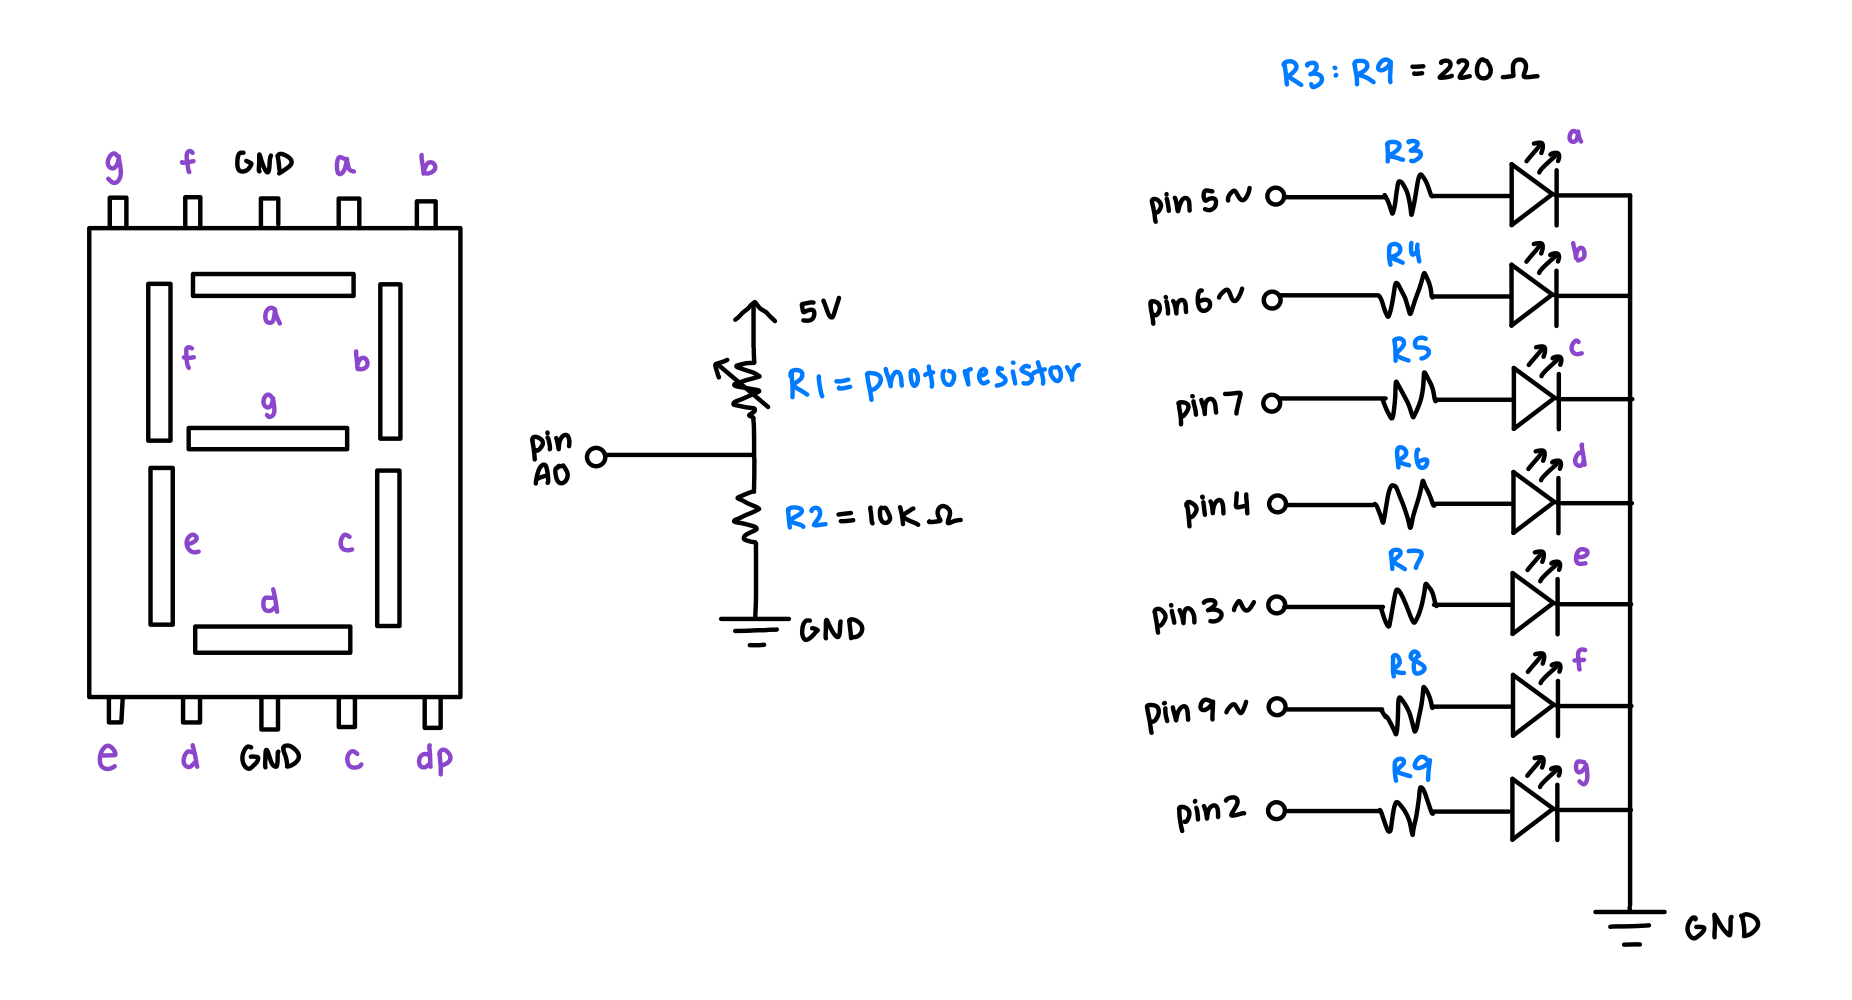 g f GND a b
a
f b
g
e c
d
e d GND c dp
5V
R1 = photoresistor
pin
A0
R2 = 10K Ω
GND
R3 : R9 = 220 Ω
R3 a
pin 5 ~
R4 b
pin 6 ~
R5 c
pin 7
R6 d
pin 4
R7 e
pin 3 ~
R8 f
pin 9 ~
R9 g
pin 2
GND